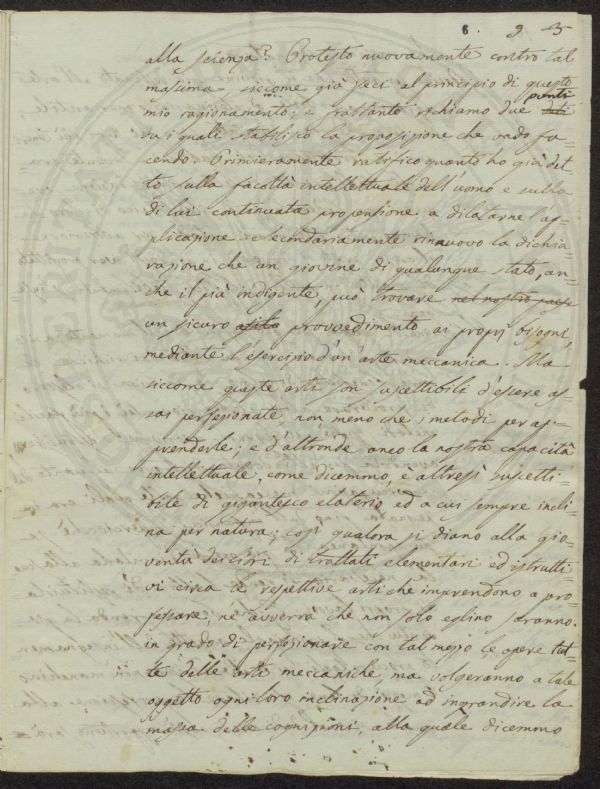 6. 9 3
alla scienza? Protesto nuovamente contro tal
massima siccome già feci al principio di questo
punti
mio ragionamento; e frattanto richiamo due
va i quali stabilisco la proposizione che vado fa-
cendo. Primieramente ratifico quanto ho già det-
to sulla facoltà intellettuale dell'uomo e sulla
di lui continuata propensione a dilatarne l'ap-
plicazione e secondariamente rinnuovo la dichia-
razione che un giovine di qualunque stato, an-
che il più indigente, può trovare nel nostro paese
un sicuro asilo provvedimento ai proprj bisogni,
mediante l'esercizio d'un'arte meccanica. Ma
siccome queste arti son suscettibili d'essere as-
sai perfezionate non meno che i metodi per ap-
prenderle; e d'altronde anco la nostra capacità
intellettuale, come dicemmo, è altresì suscetti-
bile di gigantesco elaterio, ed a cui sempre incli-
na per natura; così qualora si diano alla gio-
ventù dei corsi di trattati elementari ed istrutti-
vi circa le respettive arti che imprendono a pro-
fessare, ne avverrà che non solo eglino saranno
in grado di perfezionare con tal mezzo le opere tut-
te delle arti meccaniche, ma volgeranno a tale
oggetto ogni loro inclinazione ad ingrandire la
massa delle cognizioni, alla quale dicemmo